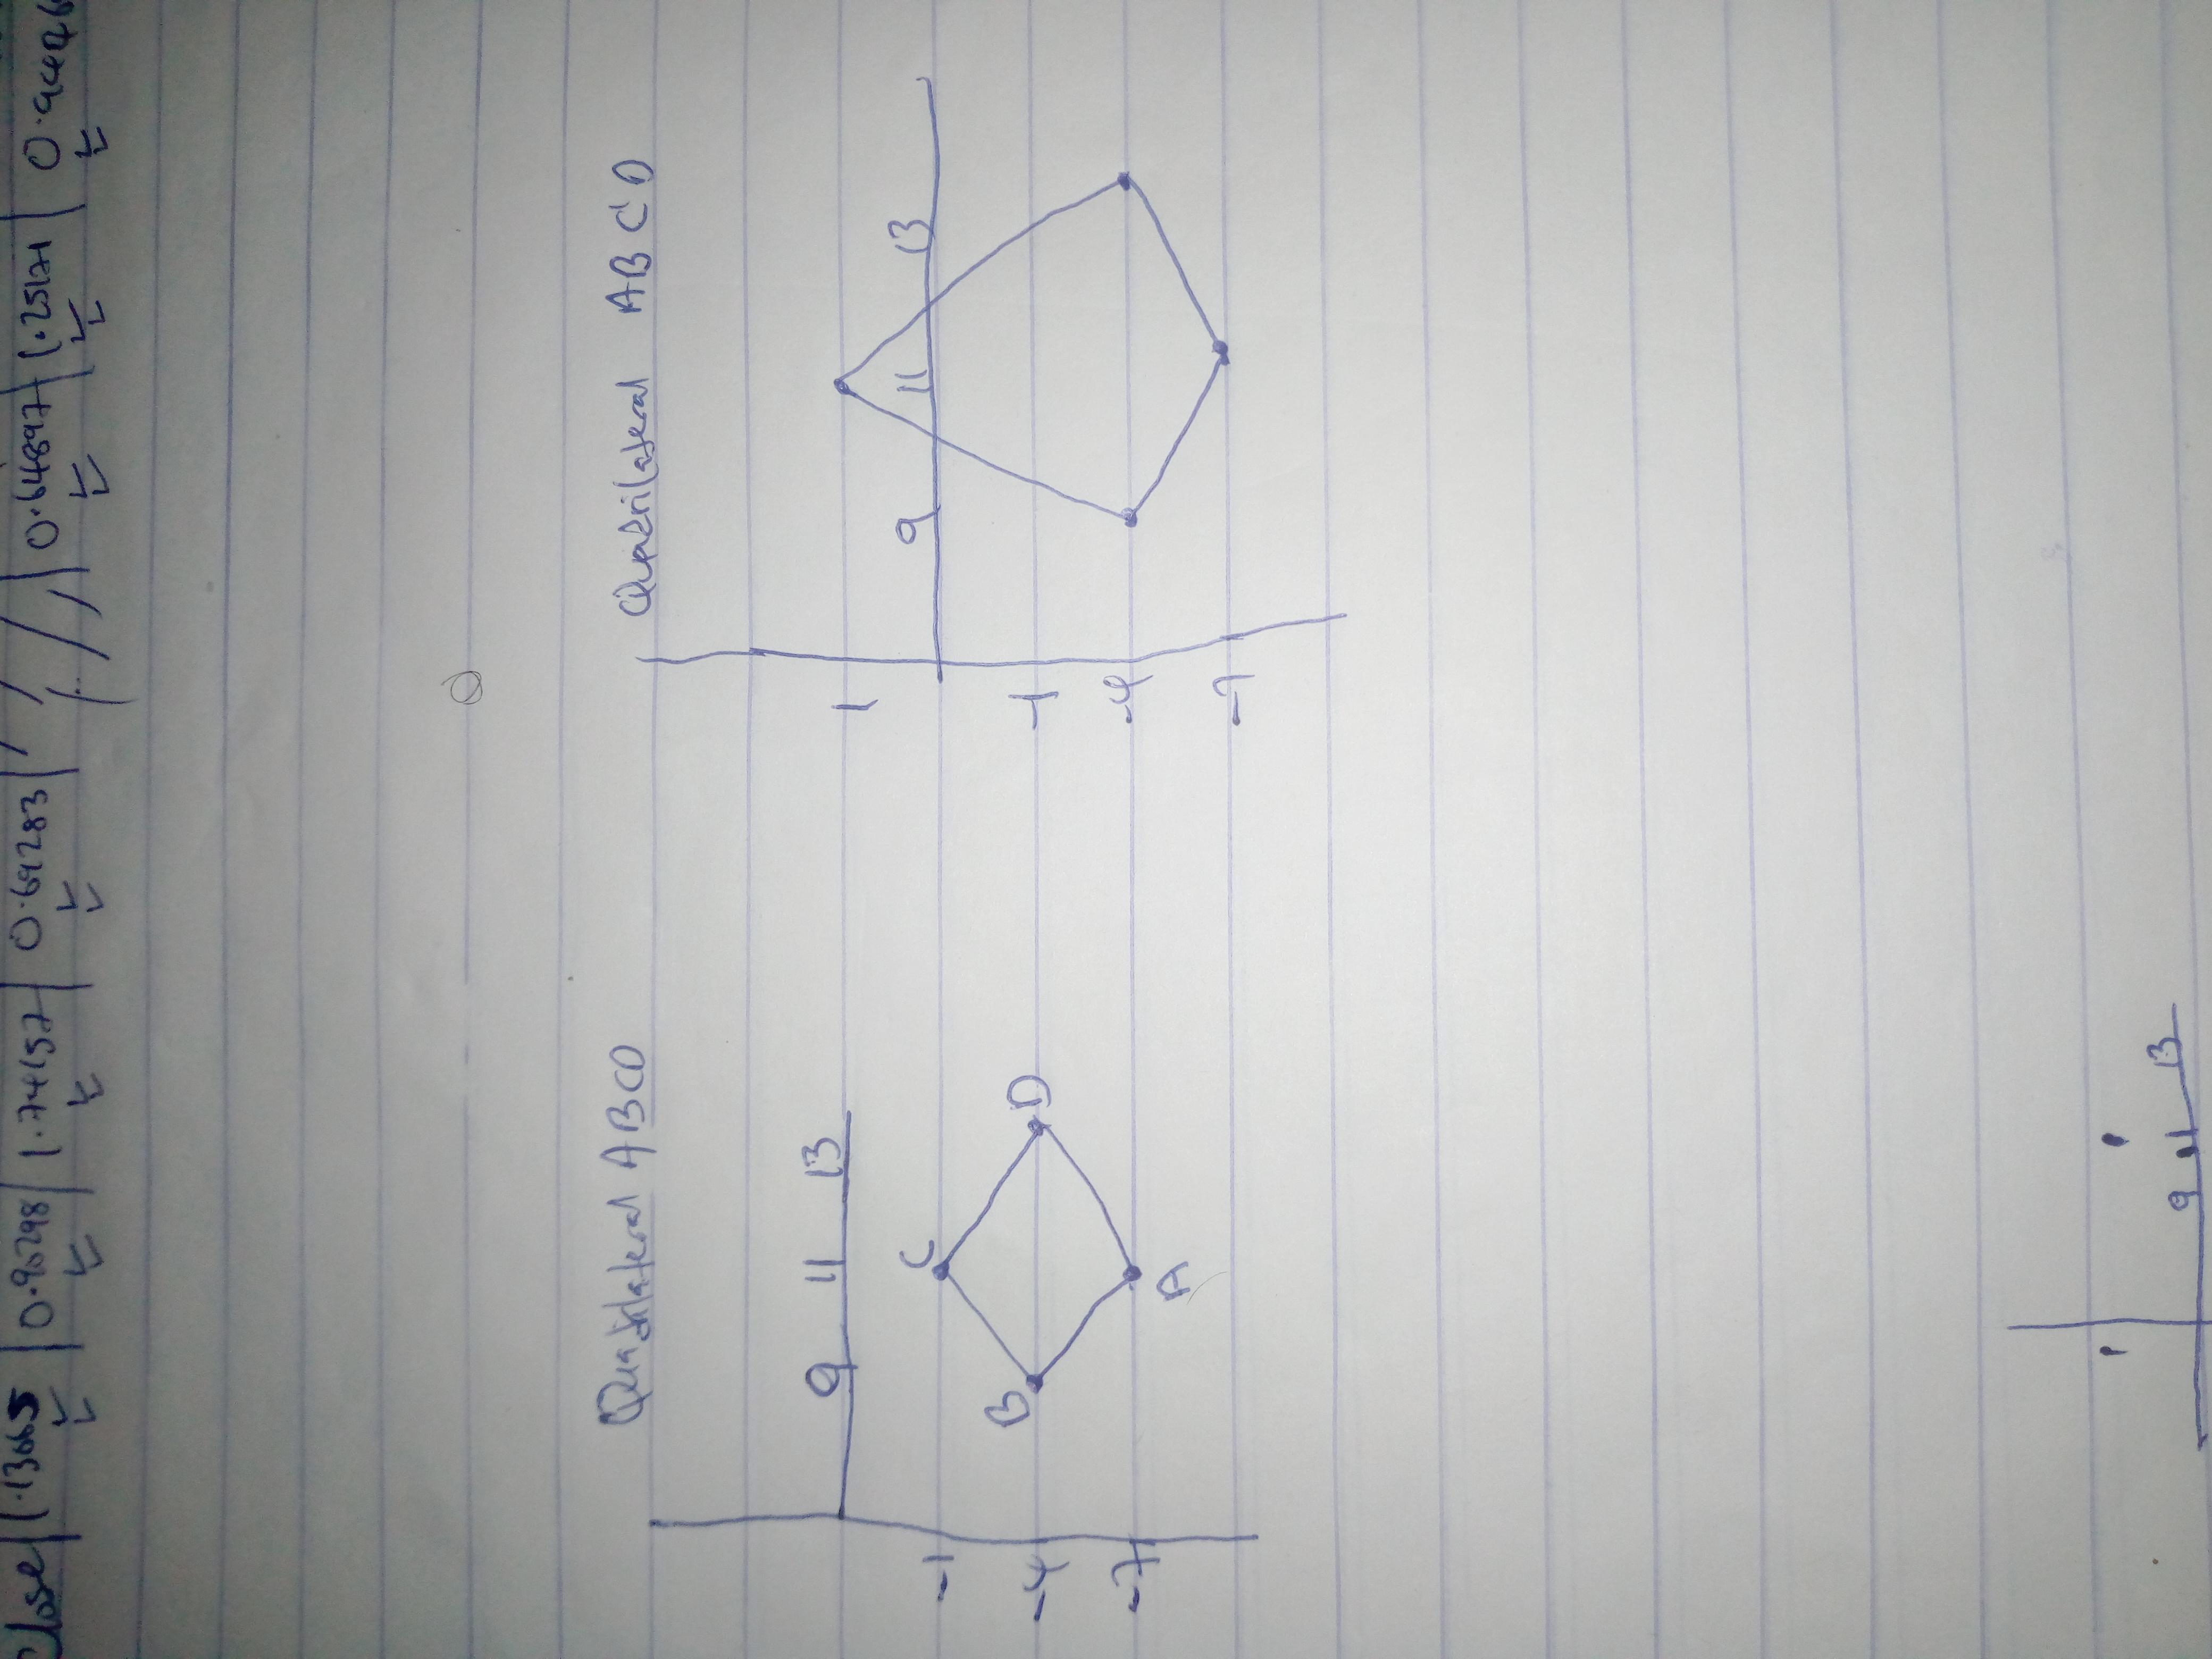 Close | 1.13665 | 0.90298 | 1.74157 | 0.69283 | / / / | 0.64897 | 1.25171 |
Quadrilateral ABCD
9 11 13
-1
-4
-7
C
B
D
A
Quadrilateral ABC'D
9 11 13
1
-1
-4
-7
1
9 11 13